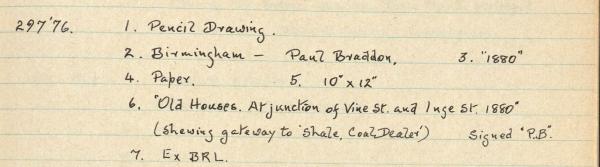 297'76. 1. Pencil Drawing.
2. Birmingham – Paul Braddon. 3. "1880"
4. Paper. 5. 10" x 12"
6. "Old Houses. At junction of Vine St. and Inge St. 1880"
(shewing gateway to 'Shale, Coal Dealer') Signed "P.B".
7. Ex BRL.